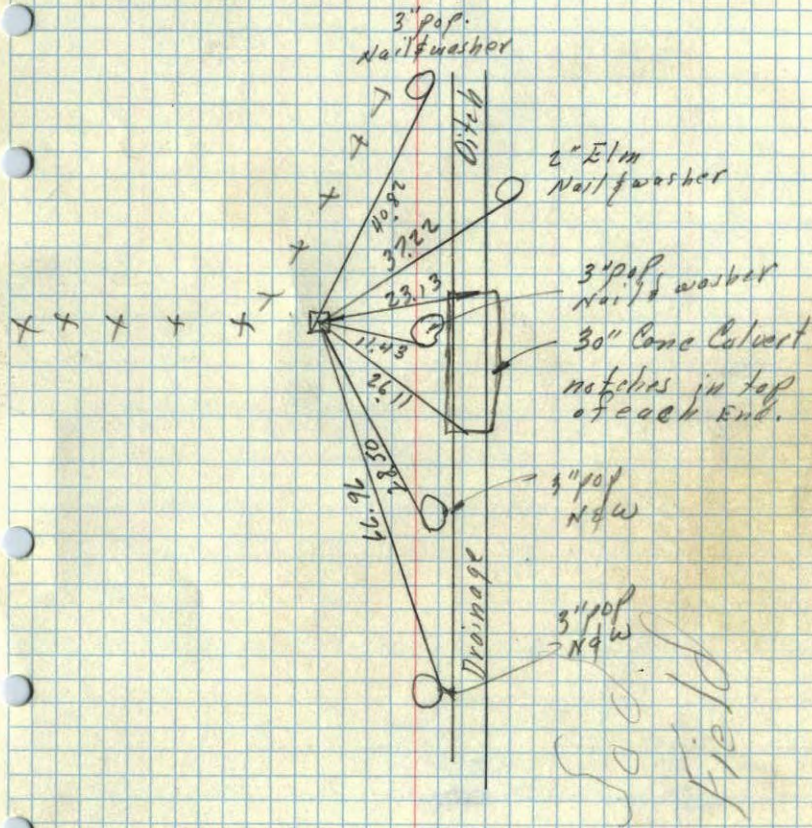 3" pop.
Nail & washer
Ditch
2" Elm
Nail & washer
40.82
37.22
23.13
3" pop
Nail & washer
11.43
30" Conc Culvert
notches in top
of each End.
11.92
28.50
3" pop
N & W
Drainage
3" pop
N & W
Sod
Field